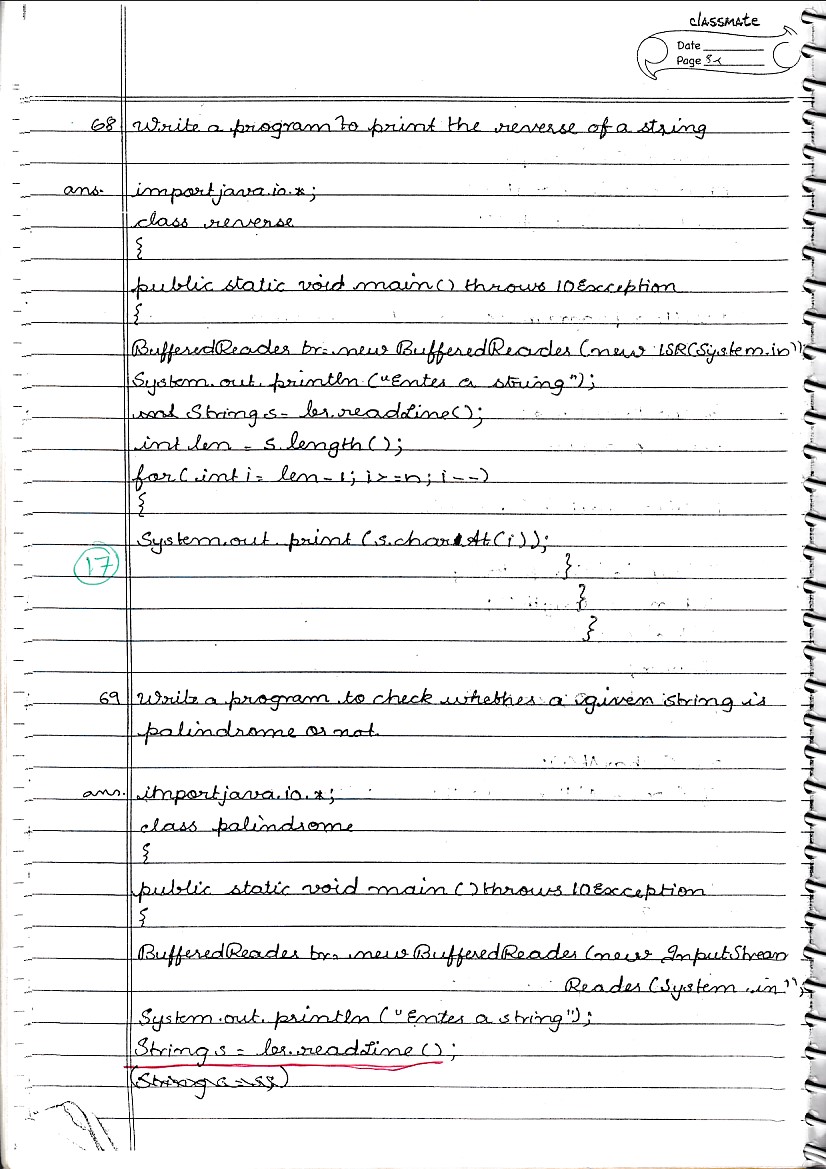 classmate
Date
Page
68 Write a program to print the reverse of a string
ans. import java.io.*;
class reverse
{
public static void main() throws IOException
{
BufferedReader br= new BufferedReader (new ISR(System.in));
System.out.println ("Enter a string");
String s= br.readLine();
int len = s.length();
for( int i= len-1; i>=n; i--)
{
System.out.print (s.charAt(i));
17
}
}
}
69 Write a program to check whether a given string is
palindrome or not.
ans. import java.io.*;
class palindrome
{
public static void main () throws IOException
{
BufferedReader br= new BufferedReader (new InputStream
Reader (System.in));
System.out.println ("Enter a string");
String s = br.readLine ();